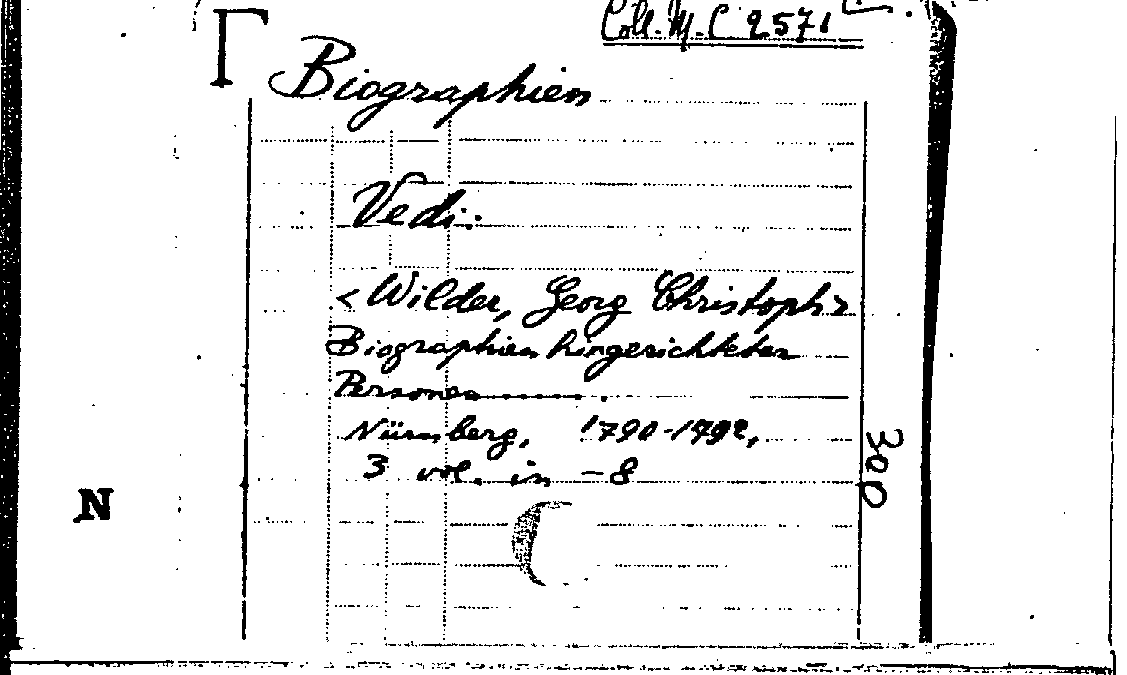 Coll. M. C 2571
Biographien
Vedi:
< Wilder, Georg Christoph >
Biographien hingerichteter
Personen .
Nürnberg, 1790-1792,
3 vol. in -8
N
300